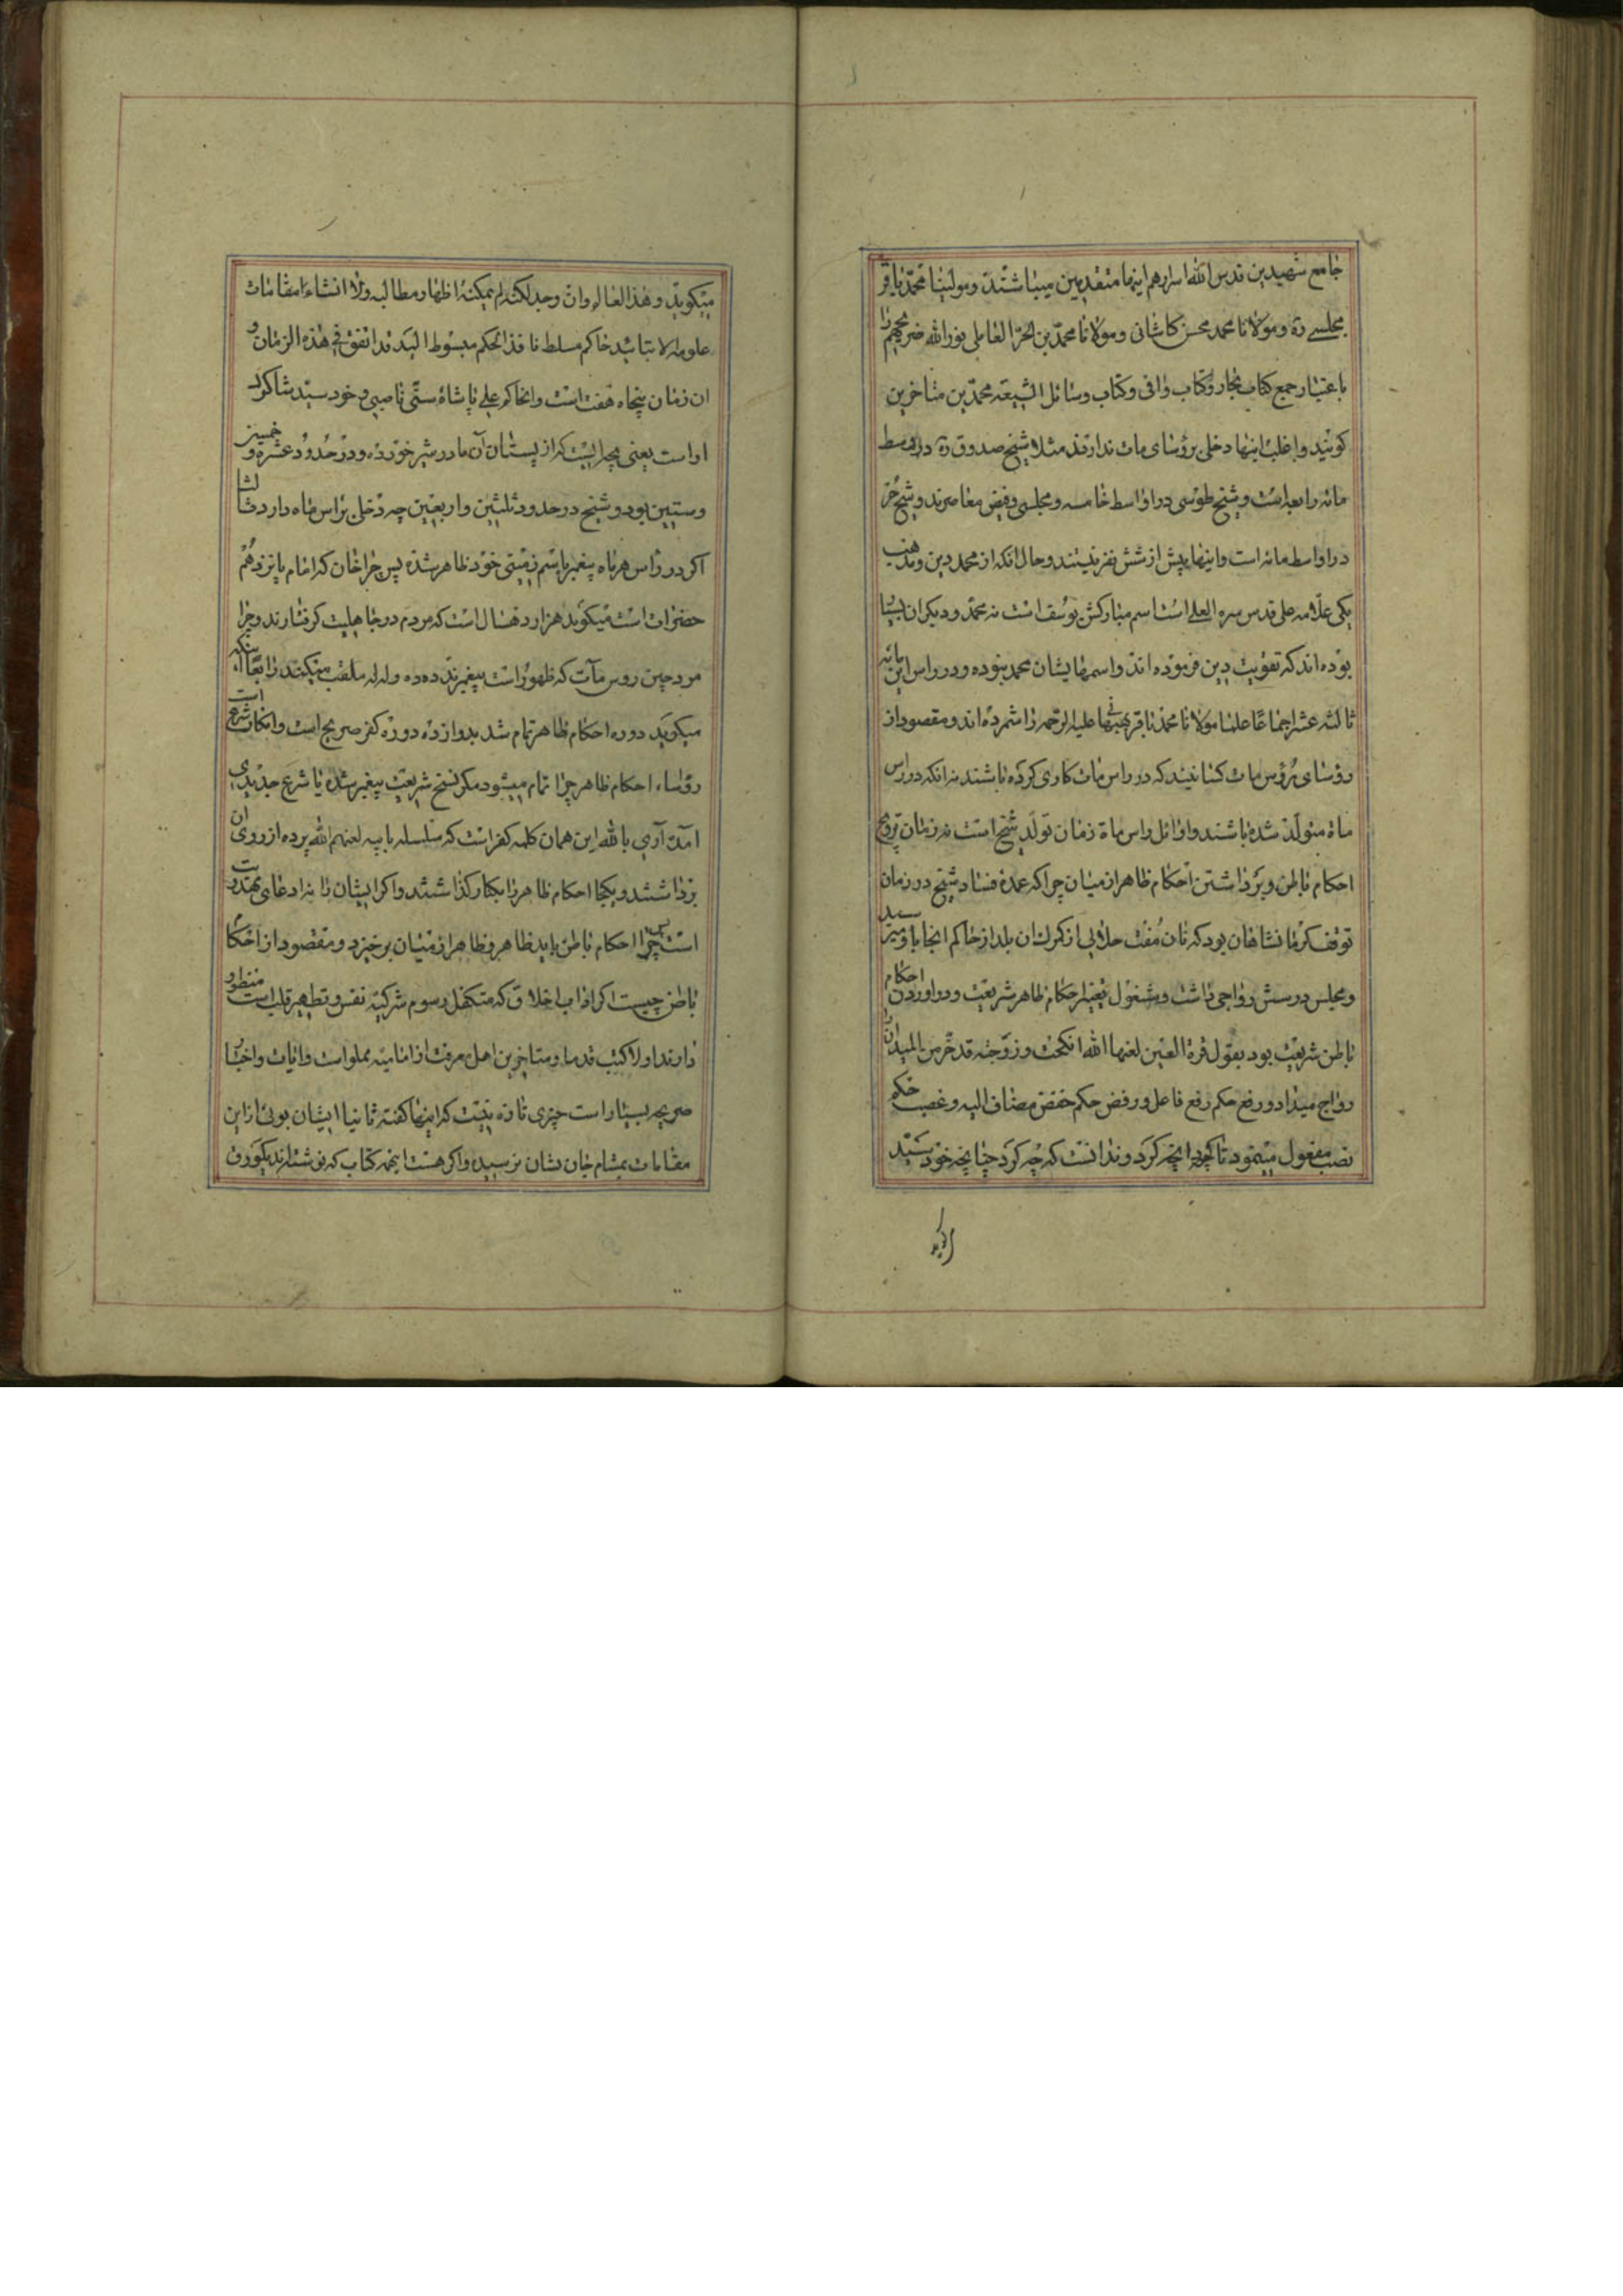 جامع شهیدین قدس الله اسرارهم اینها متقدمین میباشند و مولینا محمد باقر
مجلسی ره و مولانا محمد محسن کاشانی و مولانا محمد بن الحر العاملی نور الله ضریحهم را
باعتبار جمع کتاب بحار و کتاب وافی و کتاب وسائل الشیعه محمدین متاخرین
کویند و اغلب اینها دخلی برؤسای مات ندارند مثلا شیخ صدوق ره در اوسط
مائه رابعه است و شیخ طوسی در اواسط خامسه و مجلسی و فیض معاصرند و شیخ حر
در اواسط مائه است و اینها پیش از شش نفر نیستند و حال انکه از محمد دین و مذهب
یکی علامه علی قدس سره العلی است اسم مبارکش یوسف است نه محمد و دیکران بسیا
بوده اند که تقویت دین فرموده اند و اسمهایشان محمد نبوده و در راس این مائه
ثالثه عشر اجماعا علما مولانا محمد باقر بهبهانی علیه الرحمه را شمرده اند و مقصود از
رؤسای رؤس مات کسانیند که در راس مات کاری کرده باشند نه انکه در راس
ماة متولد شده باشند و اوائل راس ماة زمان تولد شیخ است نه زمان ترویج
احکام باطن و برداشتن احکام ظاهر از میان چرا که عمده فساد شیخ در زمان
توقف کرمانشاهان بود که نان مفت حلالی از کمرک ان بلد از حاکم انجا باو میرسید
و مجلس درسش رواجی داشت و مشغول تغییر احکام ظاهر شریعت و در اوردن احکام
باطن شریعت بود بقول قرة العین لعنها الله انکحت و زوجت قد خر من المیدان
رواج میداد و رفع حکم رفع فاعل و رفض حکم خفض مضاف الیه و غصب حکم
نصب مفعول مینمود تا کرد انچه کرد و ندانست که چه کرد چنانچه خود سید
میکوید و هذا العالم وان وجد لکنه لم یمکنه اظهار مطالبه ولا انشاء مقامات
علومه الا بتائید حاکم مسلط نافذ الحکم مبسوط الید قد اتفق فی هذه الزمان و
ان زمان پنجاه هفت است و انحاکم علی پاشاه سنی ناصبی و خود سید شاکرد
او است یعنی بچه ایست که از پستان آن مادر شیر خورده و در حدود عشره و خمسین
و ستین بود و شیخ در حدود ثلثین و اربعین چه دخلی براس ماه دارد ثالثا
اکر در راس هر ماه پیغمبر باسم زمینی خود ظاهر شده پس چرا خان که امام پانزدهم
حضرات است میکوید هزار دهسال است که مردم در جاهلیت کرفتارند و چرا
مردچین روس مآت که ظهور است پیغمبرند ده ده و له له ملقب میکنند رابعا اینکه
میکوید دوره احکام ظاهر تمام شد بدوازده دوره کفر صریح است و انکار شرع است
رؤساء احکام ظاهر چرا تمام میشود مکر نسخ شریعت پیغمبر شده یا شرع جدیدی
امده آری بالله این همان کلمه کفر است که سلسله بابیه لعنهم الله پرده از روی ان
برداشتند و یکجا احکام ظاهر را بکنار کذاشتند و اکر ایشان را نه ادعای مهدویت
است پس چرا احکام باطن باید ظاهر و ظاهر از میان برخیزد و مقصود از احکا
باطن چیست اکر اداب اخلاق که متکفل رسوم تزکیه نفس و تطهیر قلب است منظور
دارند اولا کتب قدما و متاخرین اهل معرفت از امامیه مملو است و ایات و اخبار
صریحه بسیار است چیزی تازه نیست که اینها کفته ثانیا ایشان بوئی از این
مقامات بمشام جان نشان نرسیده و اکر هست اینهمه کتاب که نوشته اند یکورق